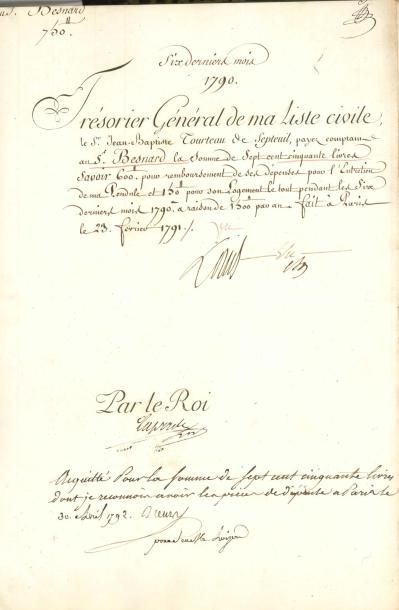 Besnard
750.
Six derniers mois
1790.
Trésorier Général de ma Liste civile,
le S.r Jean-Baptiste Tourteau de Septeuil, payez comptant
au S.r Besnard la Somme de Sept cent cinquante livres
Savoir 600.lt pour remboursement de ses dépenses pour l'Entretien
de ma Pendule et 150.lt pour son Logement le tout pendant les Six
derniers mois 1790. a raison de 1500.lt par an. fait à Paris
le 23. février 1791./.
Louis
Par le Roi
Laporte
Acquitté Pour la somme de sept cent cinquante livres
dont je reconnois avoir les pièces de dépense a Paris le
30 Avril 1792.